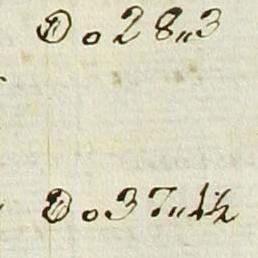 Do 28„3
Do 37„1½